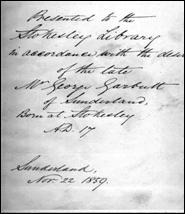 Presented to the
Stokesley Library
in accordance with the desire
of the late
Mr George Garbutt
of Sunderland,
Born at Stokesley
A.D. 17
Sunderland,
Nov. 22 1859.